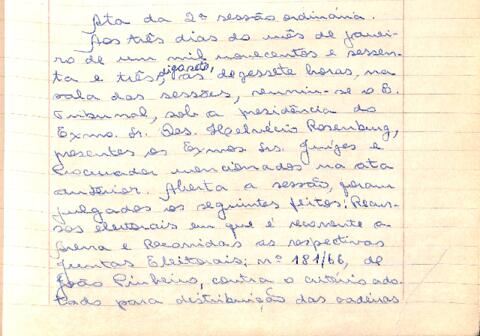 Ata da 2ª sessão ordinária.
Aos três dias do mês de janei-
ro de um mil novecentos e sessen-
ta e três, digo sete, às dezessete horas, na
sala das sessões, reuniu-se o E.
Tribunal, sob a presidência do
Exmo. Sr. Des. Helvécio Rosenburg,
presentes os Exmos Srs. Juízes e
Procurador mencionados na ata
anterior. Aberta a sessão, foram
julgados os seguintes feitos: Recur-
sos eleitorais em que é recorrente a
Arena e Recorridas as respectivas
Juntas Eleitorais: nº 181/66, de
João Pinheiro, contra o critério ado-
tado para distribuição das cadeiras